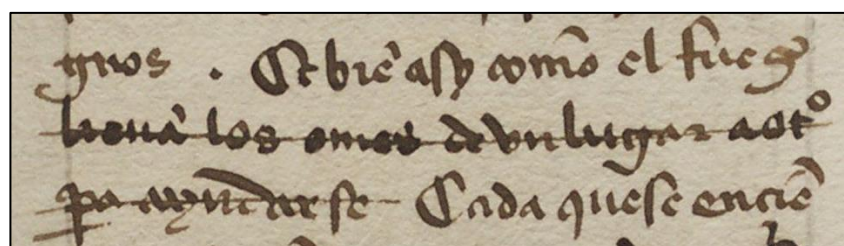 gnos . Et biẽ asy com̃o el fueg̃
lieuã los omes de vn lugar a ot°
pa ayudarse Cada que se enciẽ